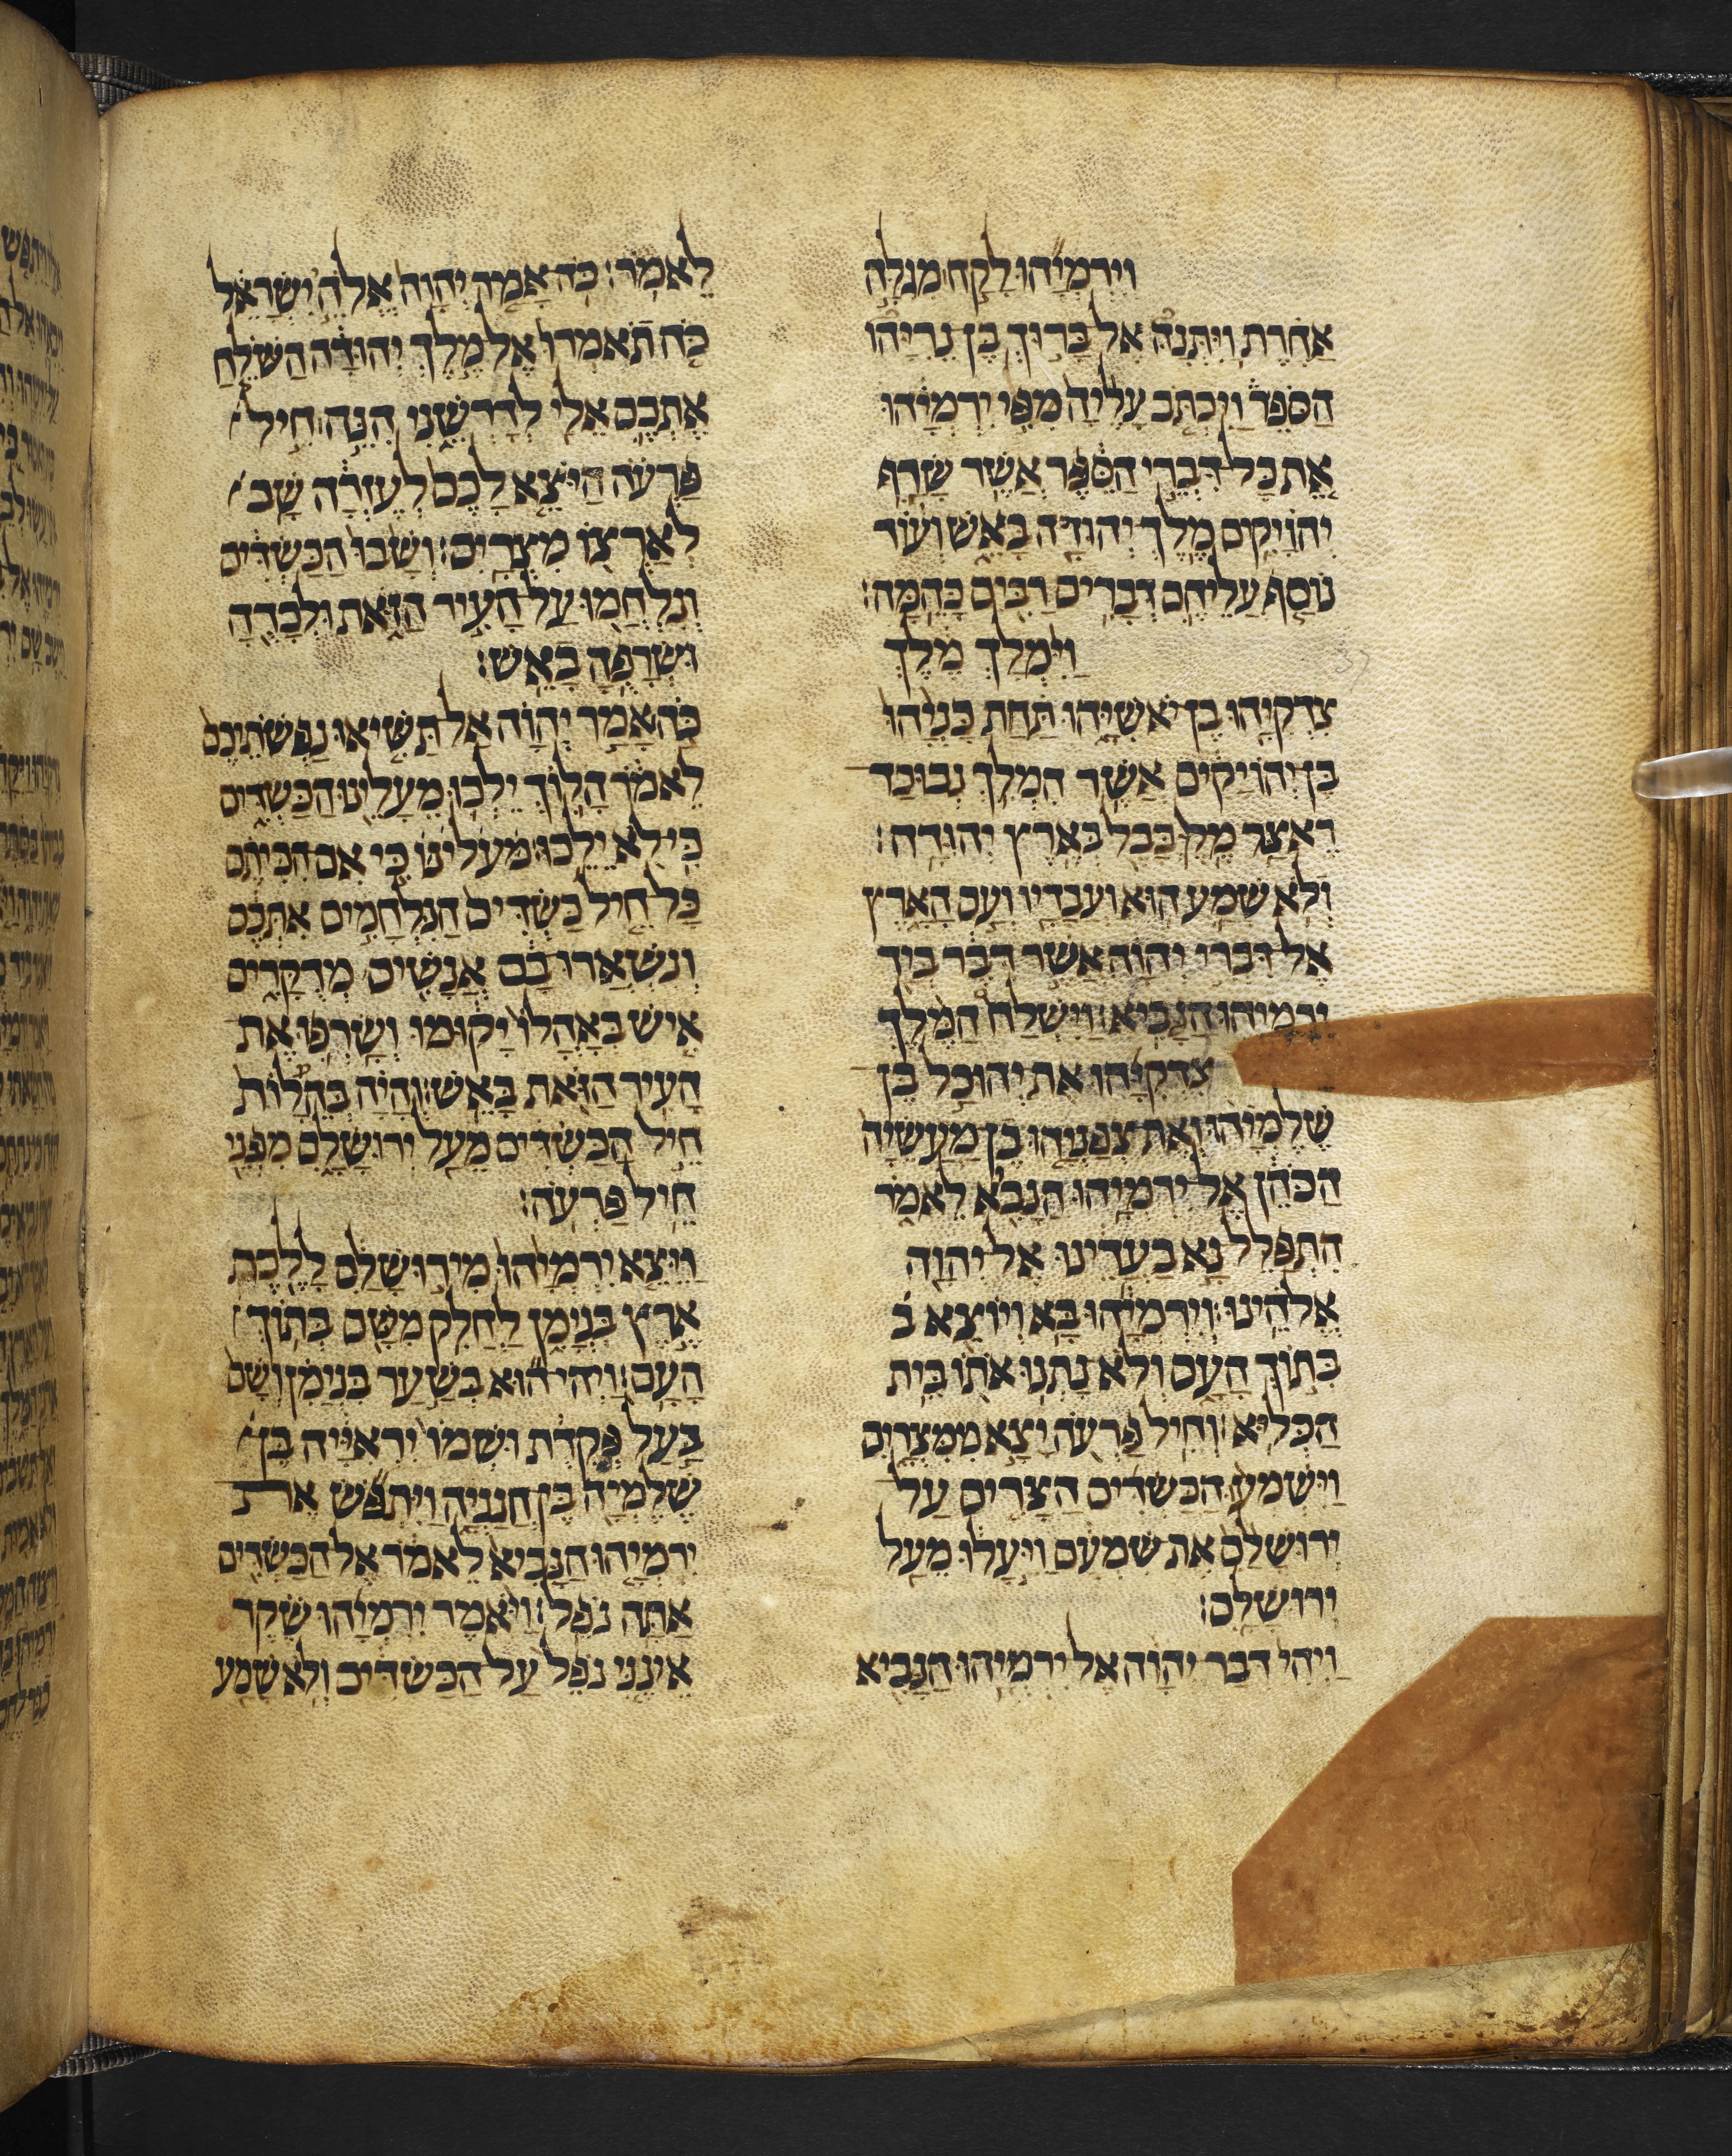 וירמיהו לקח מגלה
אחרת ויתנה אל ברוך בן נריהו
הספר ויכתב עליה מפי ירמיהו
את כל דברי הספר אשר שרף
יהויקים מלך יהודה באש ועוד
נוסף עליהם דברים רבים כהמה׃
וימלך מלך
צדקיהו בן יאשיהו תחת כניהו
בן יהויקים אשר המלך נבוכד
ראצר מלך בבל בארץ יהודה׃
ולא שמע הוא ועבדיו ועם הארץ
אל דברי יהוה אשר דבר ביד
ירמיהו הנביא׃ וישלח המלך
צדקיהו את יהוכל בן
שלמיהו ואת צפניהו בן מעשיה
הכהן אל ירמיהו הנביא לאמר
התפלל נא בעדינו אל יהוה
אלהינו׃ וירמיהו בא ויוצא ב
בתוך העם ולא נתנו אתו בית
הכליא׃ וחיל פרעה יצא ממצרים
וישמעו הכשדים הצרים על
ירושלם את שמעם ויעלו מעל
ירושלם׃
ויהי דבר יהוה אל ירמיהו הנביא
לאמר׃ כה אמר יהוה אלהי ישראל
כה תאמרו אל מלך יהודה השלח
אתכם אלי לדרשני הנה חיל
פרעה היוצא לכם לעזרה שב
לארצו מצרים׃ ושבו הכשדים
ונלחמו על העיר הזאת ולכדה
ושרפה באש׃
כה אמר יהוה אל תשיאו נפשתיכם
לאמר הלוך ילכו מעלינו הכשדים
כי לא ילכו׃ מעלינו כי אם הכיתם
כל חיל כשדים הנלחמים אתכם
ונשארו בם אנשים מדקרים
איש באהלו יקומו ושרפו את
העיר הזאת באש׃ והיה בהעלות
חיל הכשדים מעל ירושלם מפני
חיל פרעה׃
ויצא ירמיהו מירושלם ללכת
ארץ בנימן לחלק משם בתוך
העם׃ ויהי הוא בשער בנימן ושם
בעל פקדת ושמו יראייה בן
שלמיה בן חנניה ויתפש את
ירמיהו הנביא לאמר אל הכשדים
אתה נפל׃ ויאמר ירמיהו שקר
אינני נפל על הכשדים ולא שמע